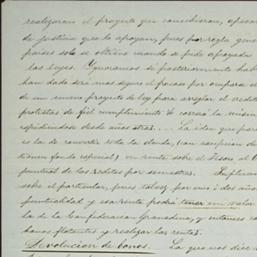 realizaran el proyecto que concibieron, apesar
de justicia que lo apoyan, pues por regla gene
paises solo se obtiene cuando se pide apoyado
las leyes. Ignoramos si posteriormente hab
han dado será mas seguro el fracaso por
de un nuevo proyecto de ley para arreglar el credito
protestas de fiel cumplimiento correrá la misma
repudiadas desde años atras. La idea que par
es la de convertir toda la deuda, (con escepcion de
tienen fondo especial) en renta sobre el Tesoro al
puntual de los reditos por semestres.
sobre el particular, pues talvez por uno i dos años
puntualidad y esa renta podrá tener un valor
la de la Confederacion Granadina, y entonces
bonos flotantes y realizar las rentas.
Devolucion de bonos. La que nos dice